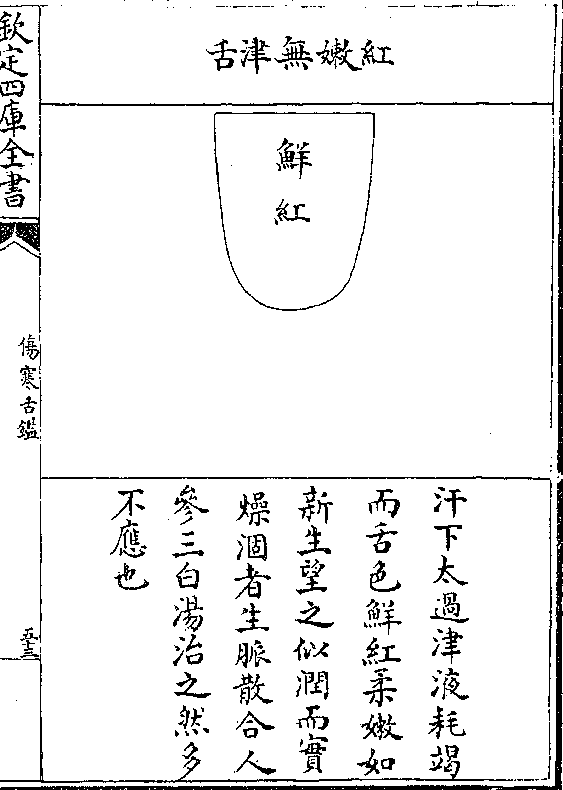 紅嫩無津舌
鮮紅
汗下太過津液耗竭
而舌色鮮紅柔嫩如
新生望之似潤而實
燥涸者生脈散合人
參三白湯治之然多
不應也
欽定四庫全書
傷寒舌鑑